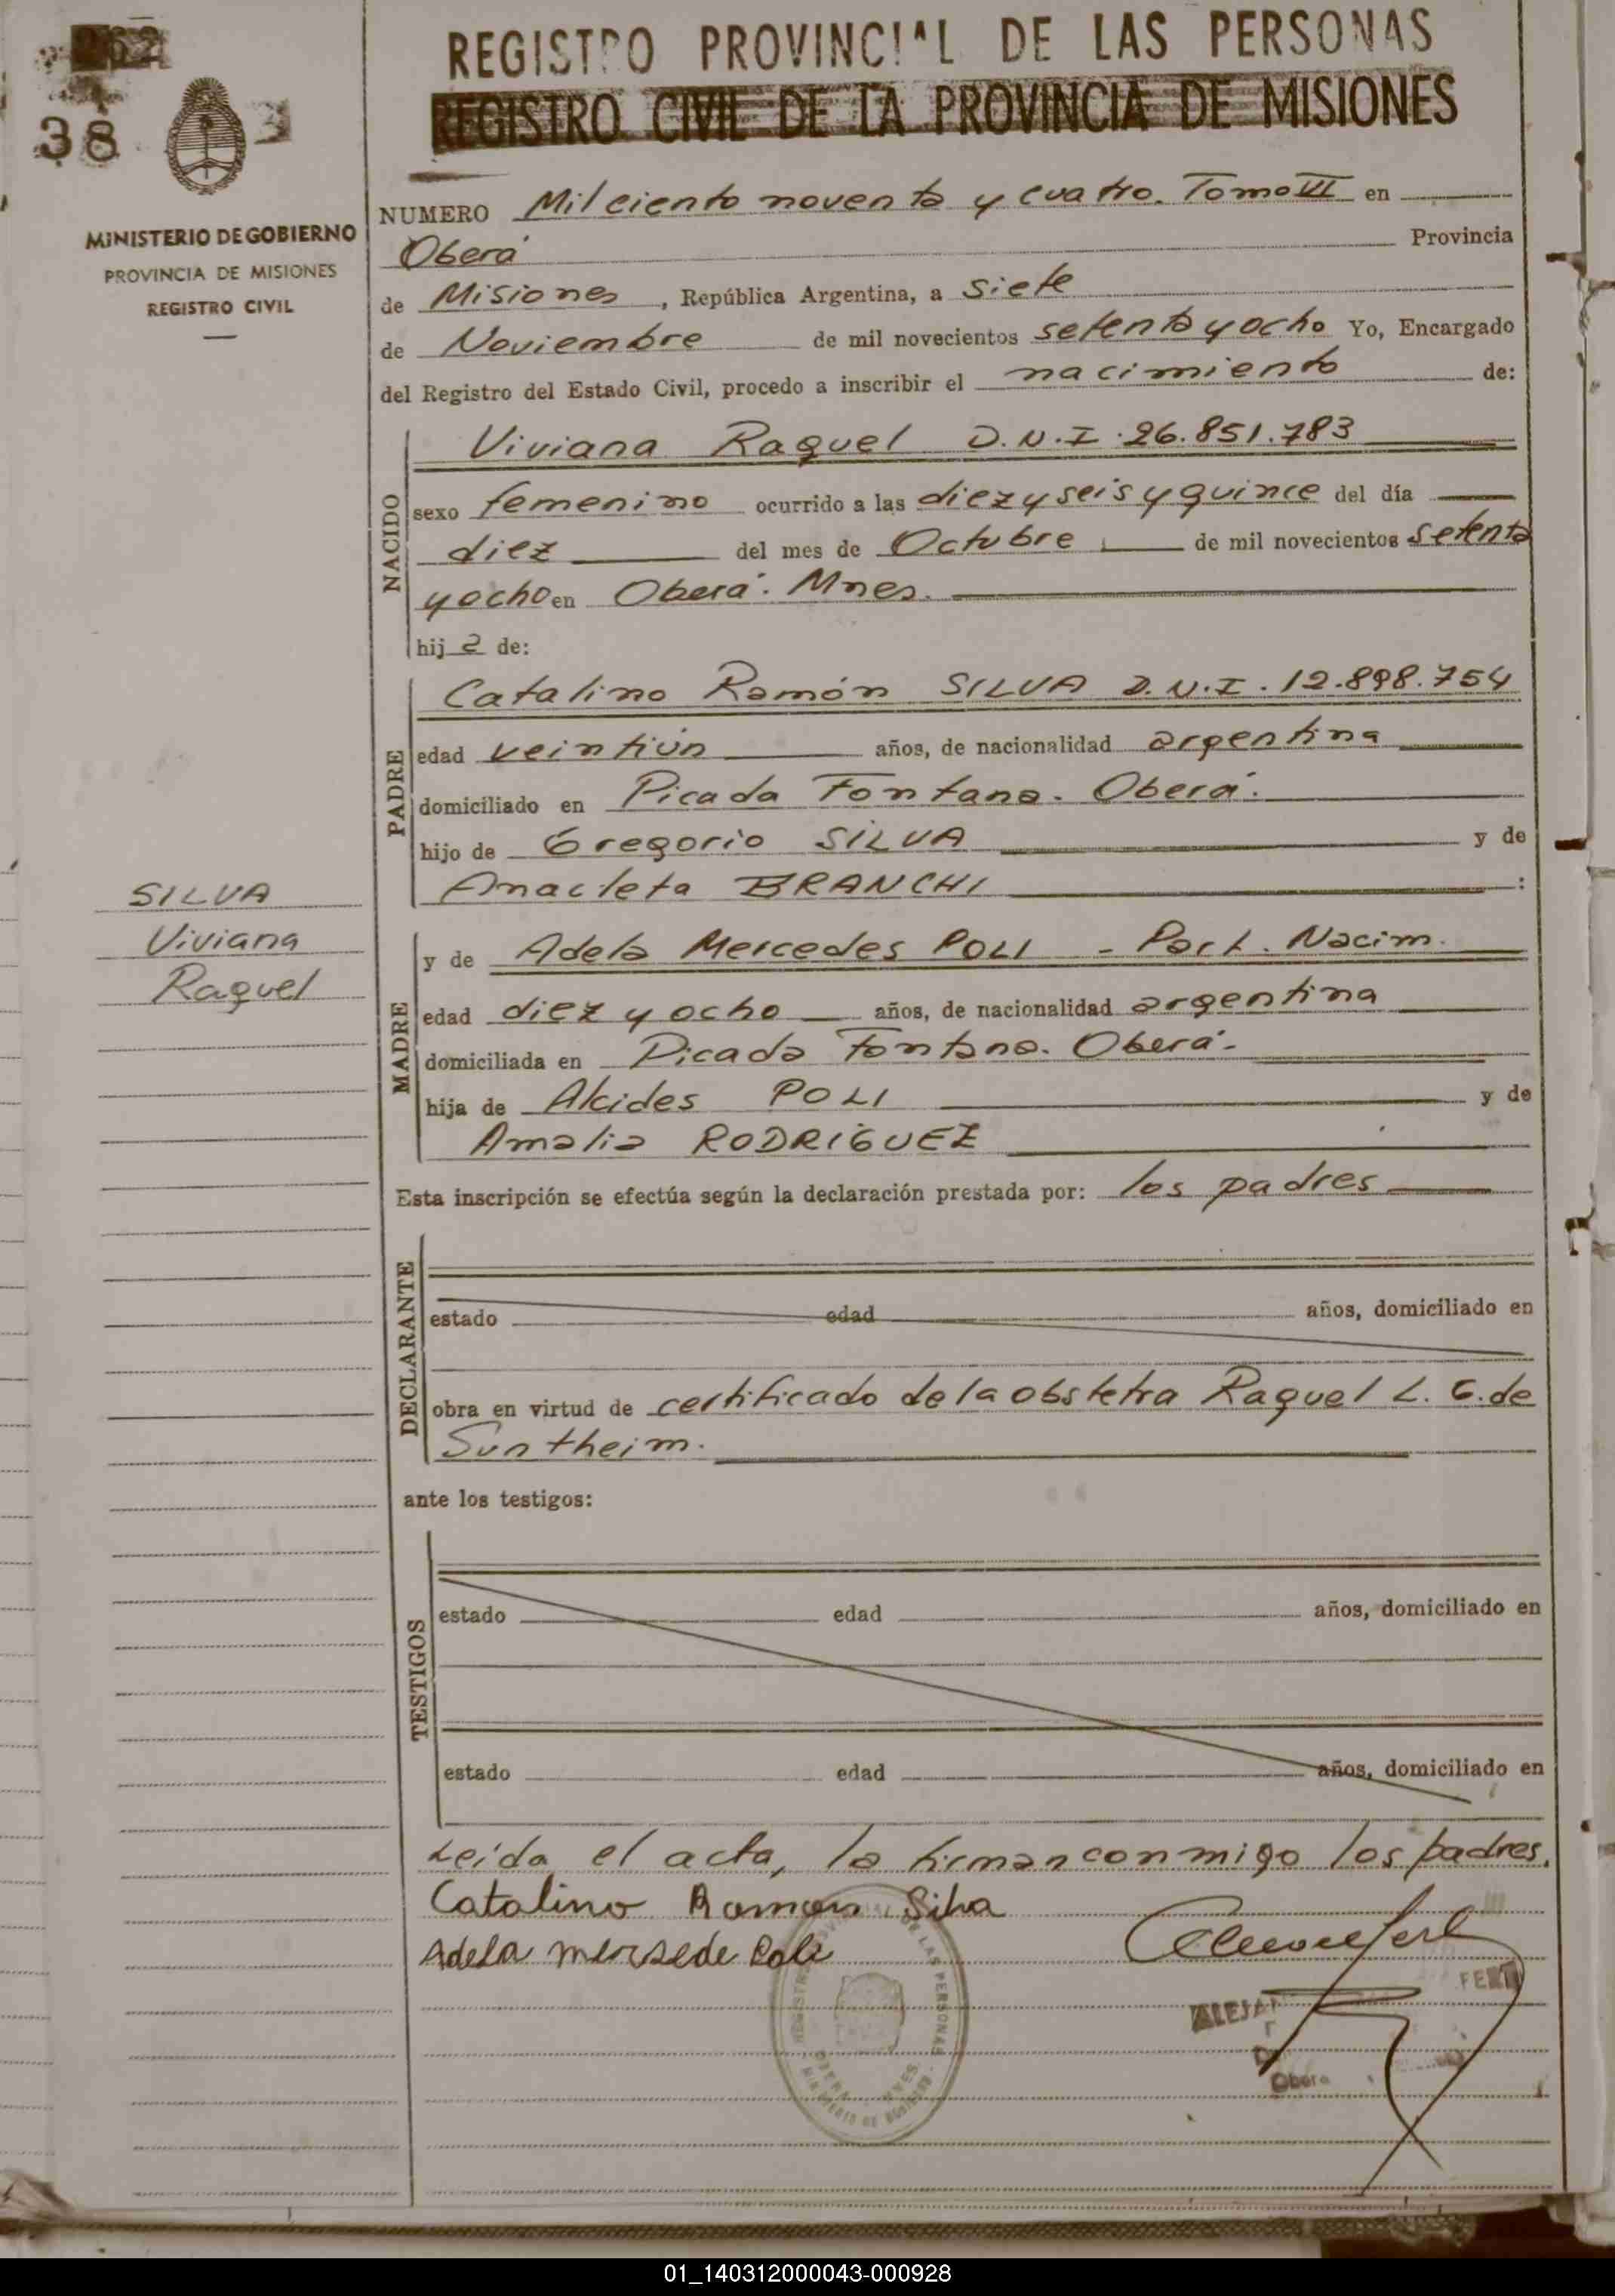 REGISTRO PROVINCIAL DE LAS PERSONAS
REGISTRO CIVIL DE LA PROVINCIA DE MISIONES
38
MINISTERIO DE GOBIERNO
PROVINCIA DE MISIONES
REGISTRO CIVIL
NUMERO Mil ciento noventa y cuatro. Tomo VI en
Oberá Provincia
de Misiones, República Argentina, a siete
de Noviembre de mil novecientos setenta y ocho Yo, Encargado
del Registro del Estado Civil, procedo a inscribir el nacimiento de:
NACIDO
Viviana Raquel D.N.I. 26.851.783
sexo femenino ocurrido a las diez y seis y quince del día
diez del mes de Octubre de mil novecientos setenta
y ocho en Oberá. Mnes.
hij a de:
PADRE
Catalino Ramón SILVA D.N.I. 12.898.754
edad veintiún años, de nacionalidad argentina
domiciliado en Picada Fontana. Oberá.
hijo de Gregorio SILVA y de
Anacleta BRANCHI :
SILVA
Viviana
Raquel
MADRE
y de Adela Mercedes POLI - Part. Nacim.
edad diez y ocho años, de nacionalidad argentina
domiciliada en Picada Fontana. Oberá.
hija de Alcides POLI y de
Amalia RODRIGUEZ
Esta inscripción se efectúa según la declaración prestada por: los padres
DECLARANTE
estado edad años, domiciliado en
obra en virtud de certificado de la obstetra Raquel L. G. de
Suntheim.
ante los testigos:
TESTIGOS
estado edad años, domiciliado en
estado edad años, domiciliado en
Leída el acta, la firman conmigo los padres.
Catalino Ramon Silva
Adela mersede Poli
Oberá
01_140312000043-000928